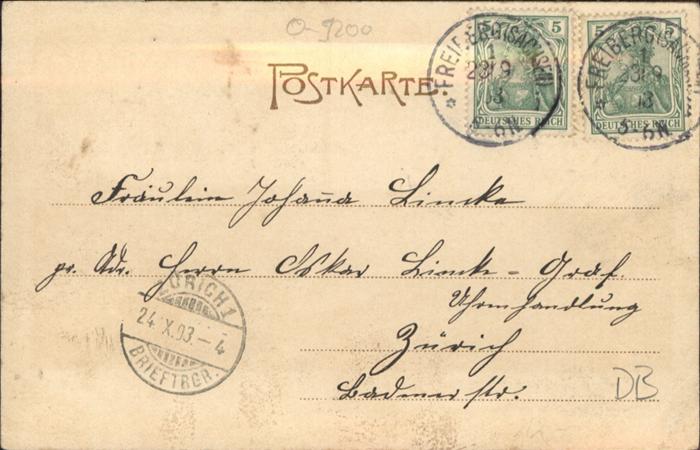 O-9200
POSTKARTE.
5
DEUTSCHES REICH
5
DEUTSCHES REICH
FREIBERG (SACHSEN)
1
23/9
03
5-6N
FREIBERG (SACHSEN)
23/9
03
5-6N
Fräulein Johanna Lincke
pr. Adr. Herrn Oskar Lincke-Graf.
Uhrenhandlung
Zürich
Badenerstr.
ZÜRICH 1
24.X.03.-4
BRIEFTRGR.
DB